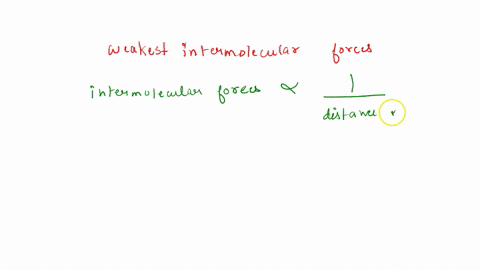 weakest intermolecular forces
intermolecular forces ∝ 1
distance r